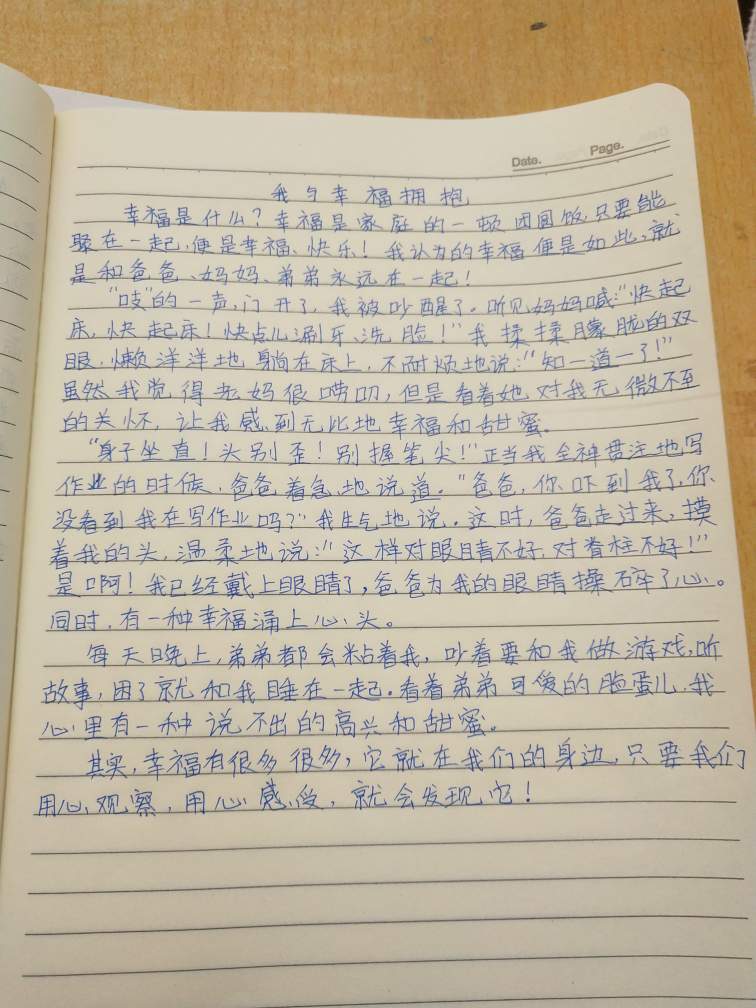 Date. Page.
我与幸福拥抱
幸福是什么?幸福是家庭的一顿团圆饭,只要能
聚在一起,便是幸福、快乐!我认为的幸福便是如此,就
是和爸爸、妈妈、弟弟永远在一起!
“吱”的一声,门开了,我被吵醒了。听见妈妈喊:“快起
床,快起床!快点儿涮牙、洗脸!”我揉揉朦胧的双
眼,懒洋洋地躺在床上,不耐烦地说:“知一道一了!”
虽然我觉得老妈很唠叨,但是看着她对我无微不至
的关怀,让我感到无比地幸福和甜蜜。
“身子坐直!头别歪!别握笔尖!”正当我全神贯注地写
作业的时候,爸爸着急地说道。“爸爸,你吓到我了,你
没看到我在写作业吗?”我生气地说。这时,爸爸走过来,摸
着我的头,温柔地说:“这样对眼睛不好,对脊柱不好!”
是啊!我已经戴上眼睛了,爸爸为我的眼睛操碎了心。
同时,有一种幸福涌上心头。
每天晚上,弟弟都会粘着我,吵着要和我做游戏,听
故事,困了就和我睡在一起。看着弟弟可爱的脸蛋儿,我
心里有一种说不出的高兴和甜蜜。
其实,幸福有很多很多,它就在我们的身边,只要我们
用心观察,用心感受,就会发现它!